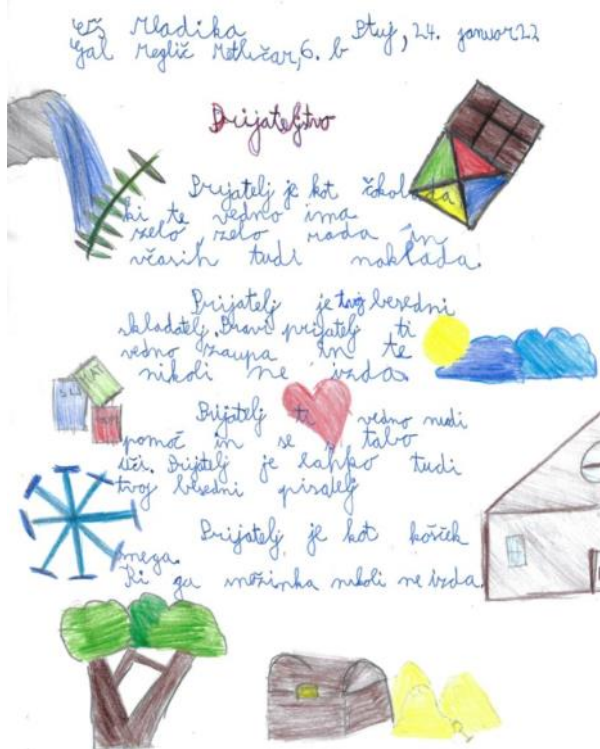 OŠ Mladika Ptuj, 24. januar 22
Gal Meglič Metličar, 6. b
Prijateljstvo
Prijatelj je kot čokolada
ki te vedno ima
zelo zelo rada in
včasih tudi naklada.
Prijatelj je tvoj besedni
skladatelj. Pravi prijatelj ti
vedno zaupa in te
nikoli ne izda.
Prijatelj ti vedno nudi
pomoč in se s tabo
uči. Prijtelj je lahko tudi
tvoj besedni pisatelj
Prijatelj je kot košček
snega.
Ki ga snežinka nikoli ne izda.
SLJ
MAT